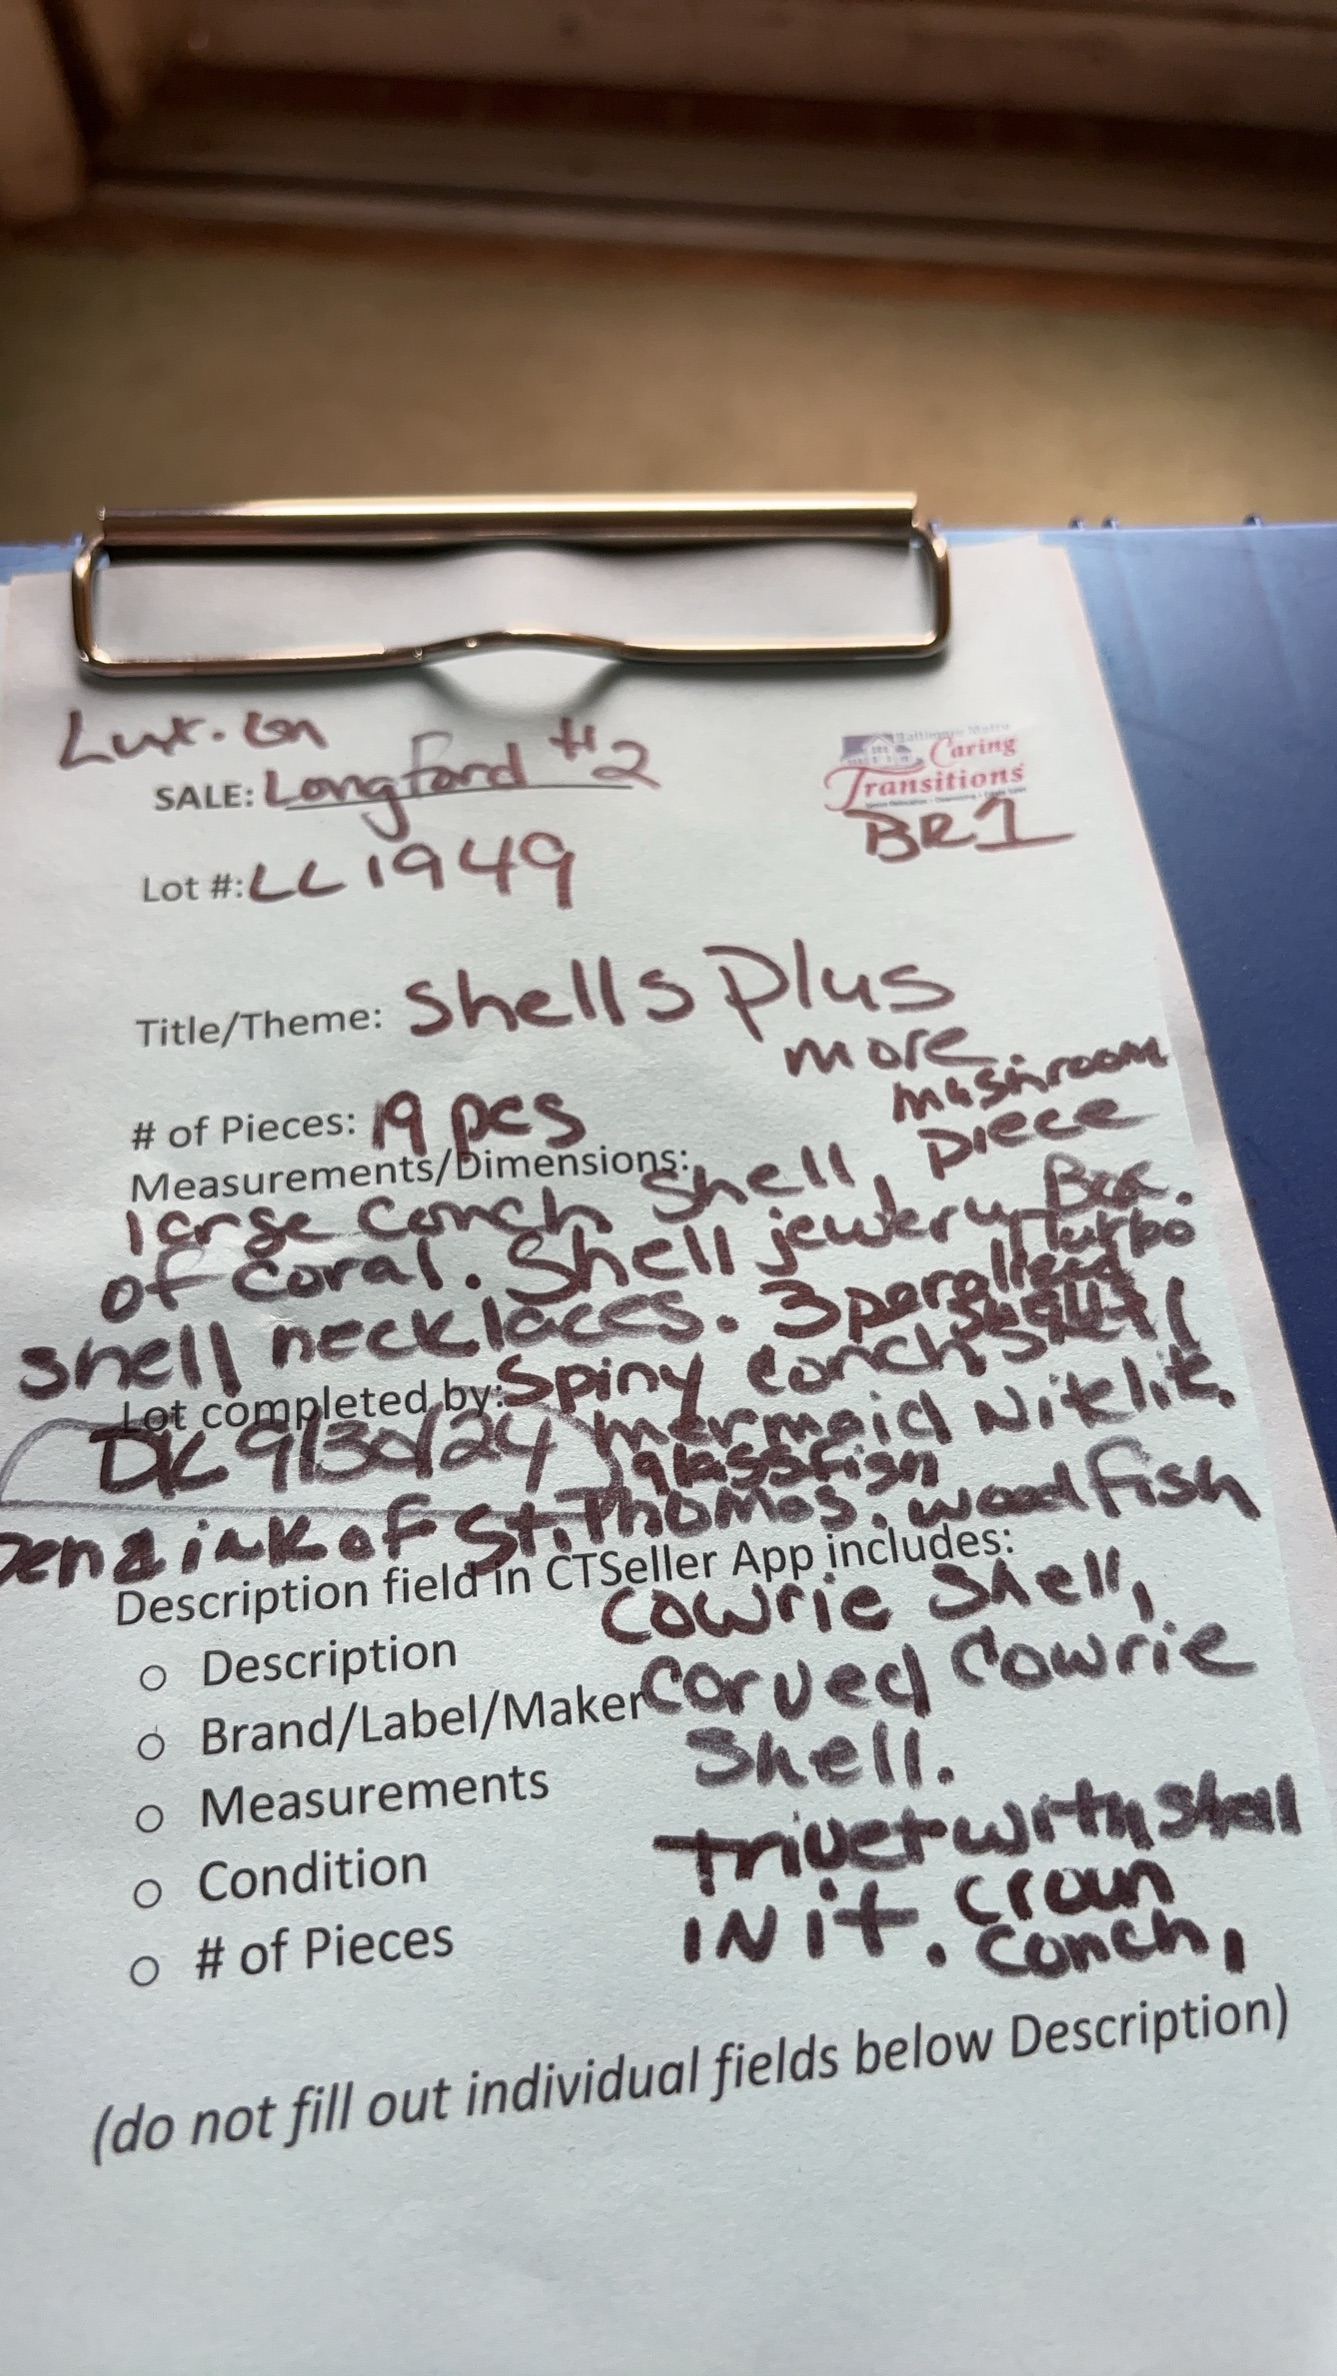 Lut. Ln
SALE: Longford #2
Baltimore Metro
Caring
Transitions
BR1
Lot #: LL1949
Title/Theme: Shells Plus
more
# of Pieces: 19 pcs
mushroom
Measurements/Dimensions:
large conch shell, piece
of coral. Shell jewlery Box.
shell necklaces. 3 parallel turbo
Spiny conch shell
Lot completed by:
DK 9/30/24 mermaid Nitelite.
glassfish
pen & ink of St. Thomas. wood fish
Description field in CTSeller App includes:
cowrie Shell,
o Description
o Brand/Label/Maker
carved Cowrie
Shell.
o Measurements
trivet with shell
o Condition
IN it. Croun
conch,
o # of Pieces
(do not fill out individual fields below Description)